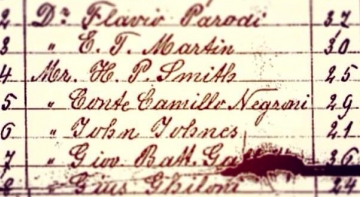 2 Dr Flavio Parodi 32
3 " E. T. Martin 30
4 Mr. H. P. Smith 25
5 " Conte Camillo Negroni 29
6 " John Johnes 21
7 " Giov. Batt. 36
8 " Gius Ghiloni 24